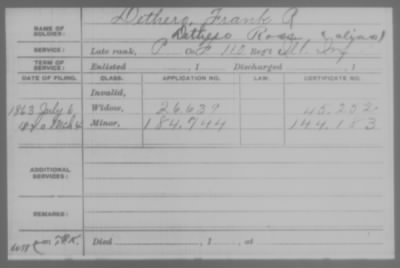 NAME OF SOLDIER: Dethero, Frank R
Ross (alias)
SERVICE: Late rank, P Co F 110 Ill. Inf
TERM OF SERVICE: Enlisted , 1 Discharged , 1
DATE OF FILING. CLASS. APPLICATION NO. LAW. CERTIFICATE NO.
Invalid,
1863 July 6 Widow, 26637 45.252
Mch 4 Minor, 184.744 144.153
ADDITIONAL SERVICES:
REMARKS:
Died , 1 , at